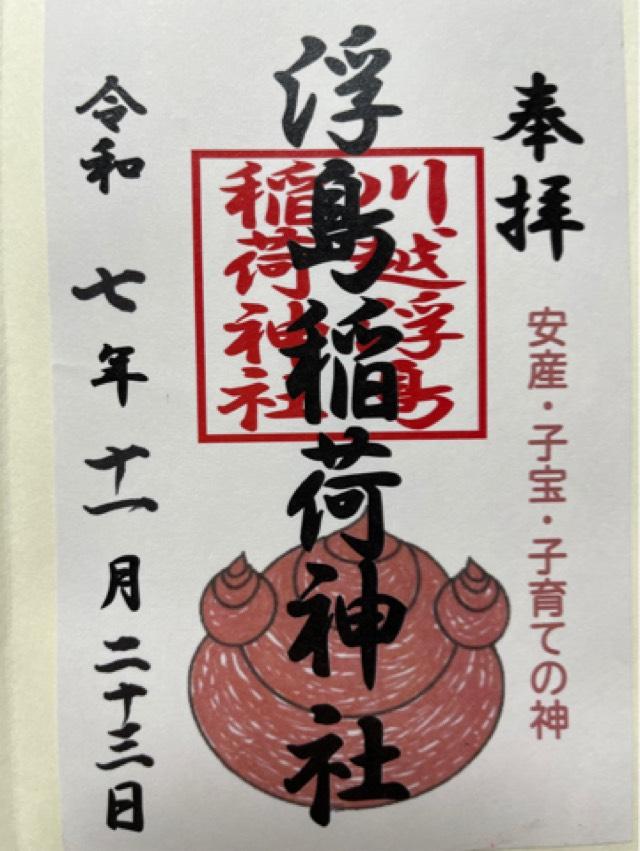 奉拝
安産・子宝・子育ての神
浮島稲荷神社
川越浮島
稲荷神社
令和 七年 十一月 二十三日